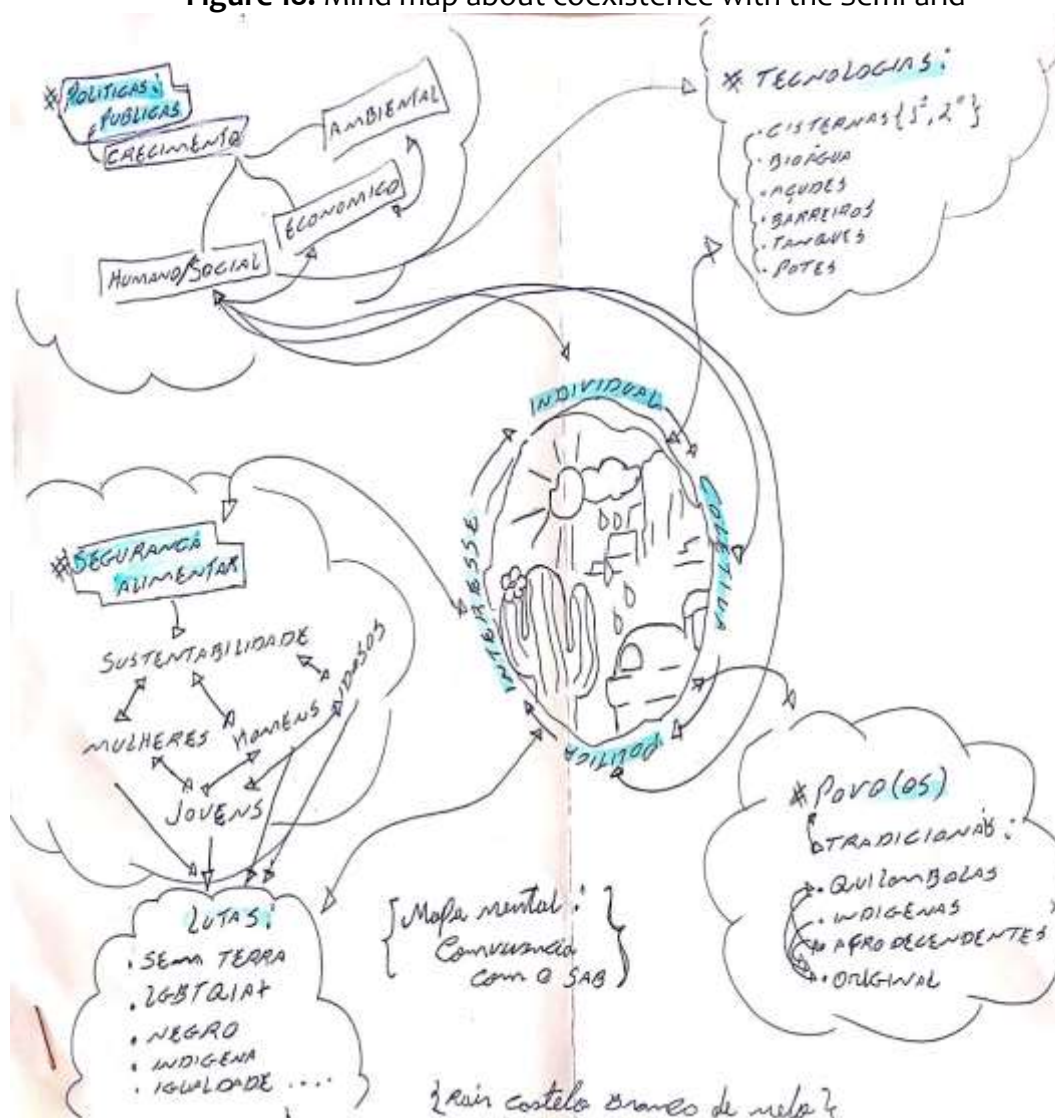 Figure 18. Mind map about coexistence with the Semi-arid
* POLITICAS:
PUBLICAS
CRECIMENTO
AMBIENTAL
ECONOMICO
HUMANO/SOCIAL
* TECNOLOGIAS:
· CISTERNAS {1ª, 2ª}
· BIOÁGUA
· AÇUDES
· BARREIROS
· TANQUES
· POTES
INDIVIDUAL
COLETIVA
POLITICA
INTERESSE
* SEGURANCA
ALIMENTAR
SUSTENTABILIDADE
MULHERES
HOMENS
IDOSOS
JOVENS
LUTAS:
· SEM TERRA
· LGBTQIA+
· NEGRO
· INDIGENA
· IGUALDADE ....
{Mapa mental:
Convivencia
com o SAB}
* POVO(OS)
TRADICIONAIS:
· QUILOMBOLAS
· INDIGENAS
· AFRODECENDENTES
· ORIGINAL
castelo Branco de melo}